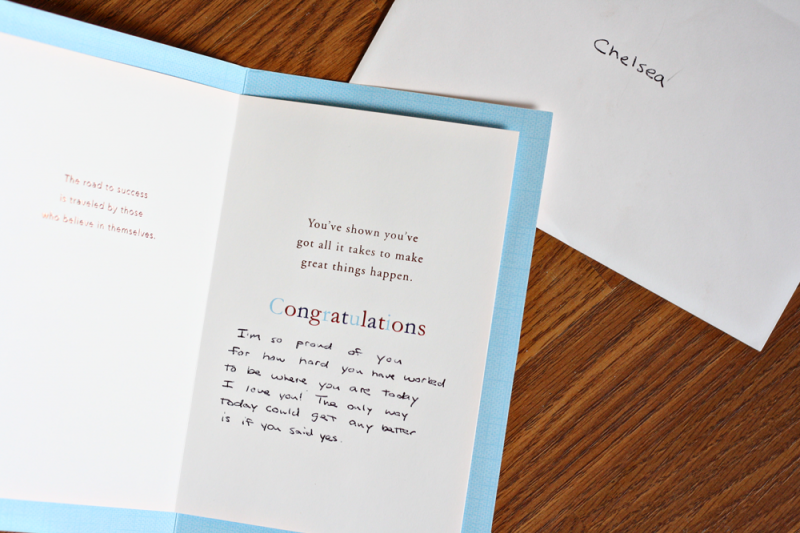 Chelsea
The road to success
is traveled by those
who believe in themselves.
You've shown you've
got all it takes to make
great things happen.
Congratulations
I'm so proud of you
for how hard you have worked
to be where you are today
I love you! The only way
today could get any better
is if you said yes.